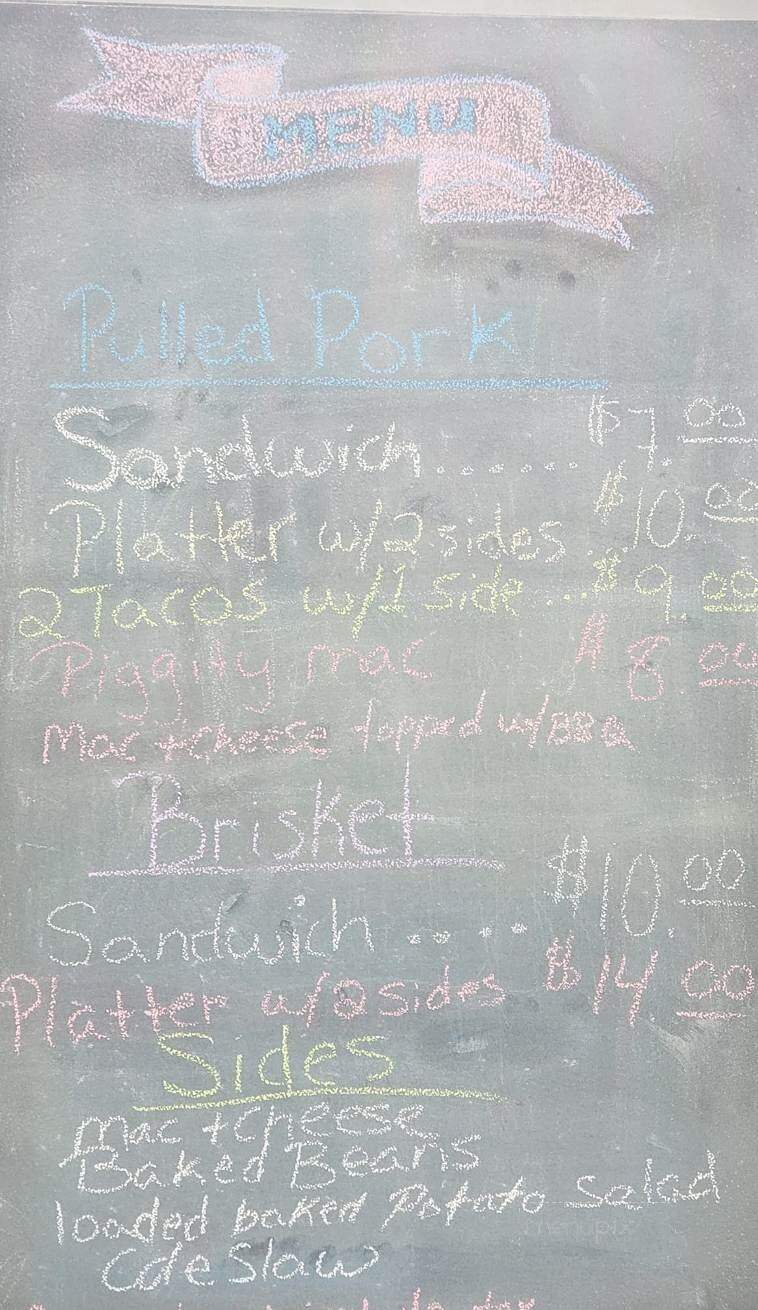 MENU
Pulled Pork
Sandwich...... $7.00
Platter w/2 sides... $10.00
2 Tacos w/1 side...$9.00
Piggily mac $8.00
Mac + Cheese topped w/BBQ
Brisket
Sandwich .. .. $10.00
Platter w/2 sides $14.00
Sides
Mac + Cheese
Baked Beans
loaded baked Potato Salad
Cole Slaw